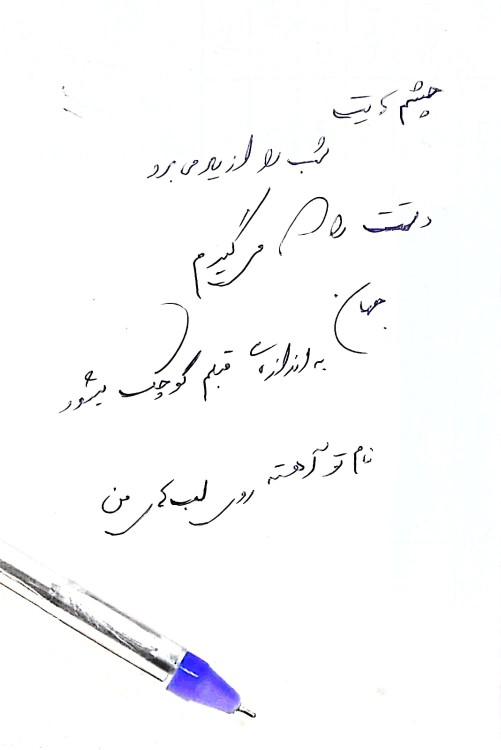 چشم‌هایت
شب را از یاد می‌برد
دستت را می‌گیرم
جهان
به اندازه‌ی قلبم کوچک میشود
نام تو آهسته روی لب‌های من